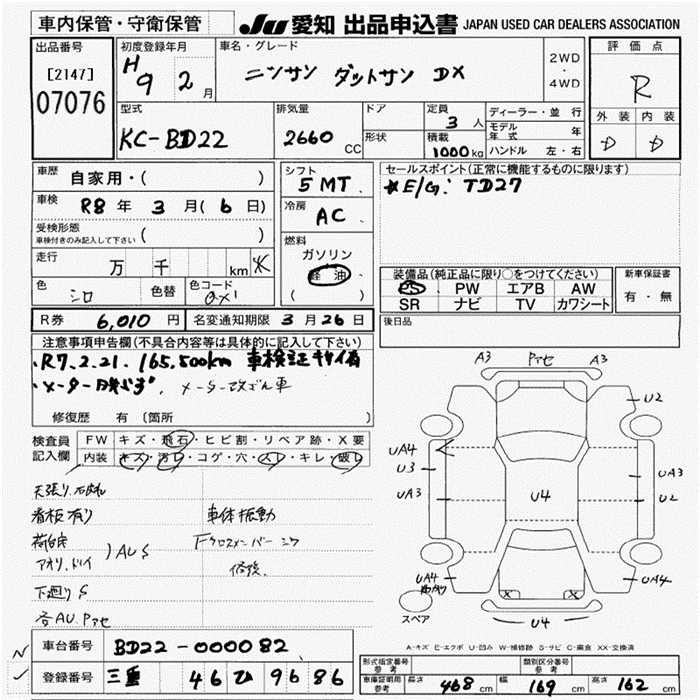 車内保管・守衛保管
JU 愛知 出品申込書 JAPAN USED CAR DEALERS ASSOCIATION
出品番号
[2147]
07076
初度登録年月
H 9 2月
車名・グレード
ニッサン ダットサン DX
2WD
・
4WD
評価点
R
外装 内装
D D
型式
KC-BD22
排気量
2660 CC
ドア
形状
定員
3 人
積載
1000 kg
ディーラー・並行
モデル年式 年
ハンドル 左・右
車歴 自家用・( )
車検 R8 年 3 月( 6 日)
受検形態 ( )
車検付きのみ記入して下さい
走行 万 千 km
色 シロ 色替 色コード
シフト
5 MT
冷房
AC
燃料
ガソリン
軽油
( )
セールスポイント(正常に機能するものに限ります)
*E/G: TD27
装備品(純正品に限り○をつけてください)
PS PW エアB AW
SR ナビ TV カワシート
新車保証書
有・無
R券 6,010 円 名変通知期限 3 月 26 日
後日品
注意事項申告欄(不具合内容等は具体的に記入して下さい)
・R7.2.21. 165,500km 車検証
・メーター改ざん メーター改ざん車
修復歴 有 (箇所
検査員
記入欄
FW キズ・飛石・ヒビ割・リペア跡・X要
内装 キズ・汚レ・コゲ・穴・スレ・キレ・破レ
看板有り 車体振動
荷台
アオリ AUS
下廻りS
各AU.Pアセ
A3 Pアセ A3
U2
UA4
U3
UA3
UA3
U2
U4
UA4
UA4
X X
U4
スペア
A-キズ E-エクボ U-凹み W-補修跡 S-サビ C-腐食 XX-交換済
車台番号 BD22-000082
登録番号 三重 46 ひ 9686
形式指定番号
参考
類別区分番号
参考
車庫証明用
参考
長さ 468 cm 幅 169 cm 高さ 162 cm